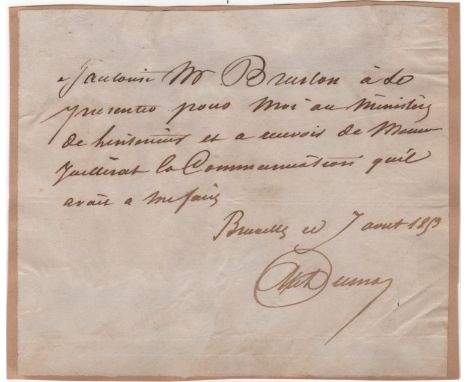 J'autorise Mr Bruslon à se
presenter pour moi au Ministère
de l'interieur et a recevoir de Monsieur
la Communication qu'il
avait a me faire
Bruxelles ce 7 aout 1853
Alex Dumas